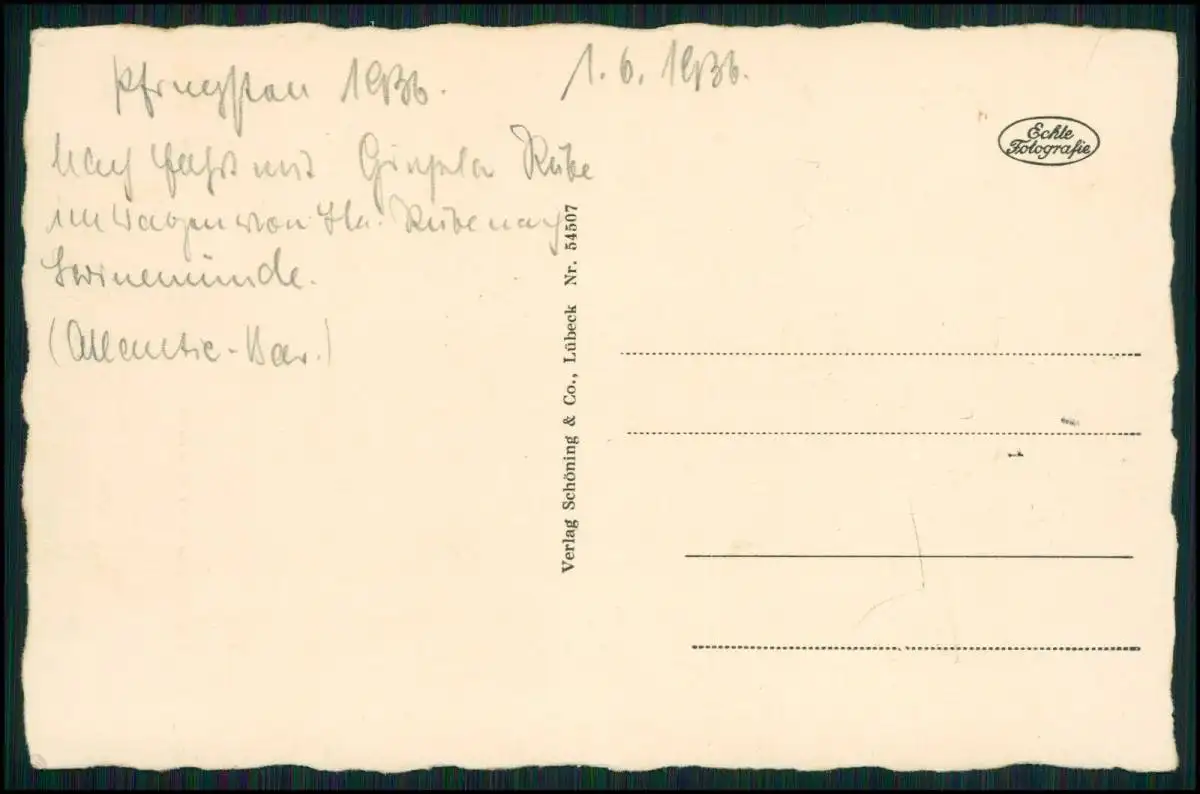 Pfingsten 1936.
1.6.1936.
Echte
Fotografie
Nach Fahrt mit Gisela Rübe
im Wagen von Rübe nach
Swinemünde.
(Atlantic-Bar.)
Verlag Schöning & Co., Lübeck Nr. 54507